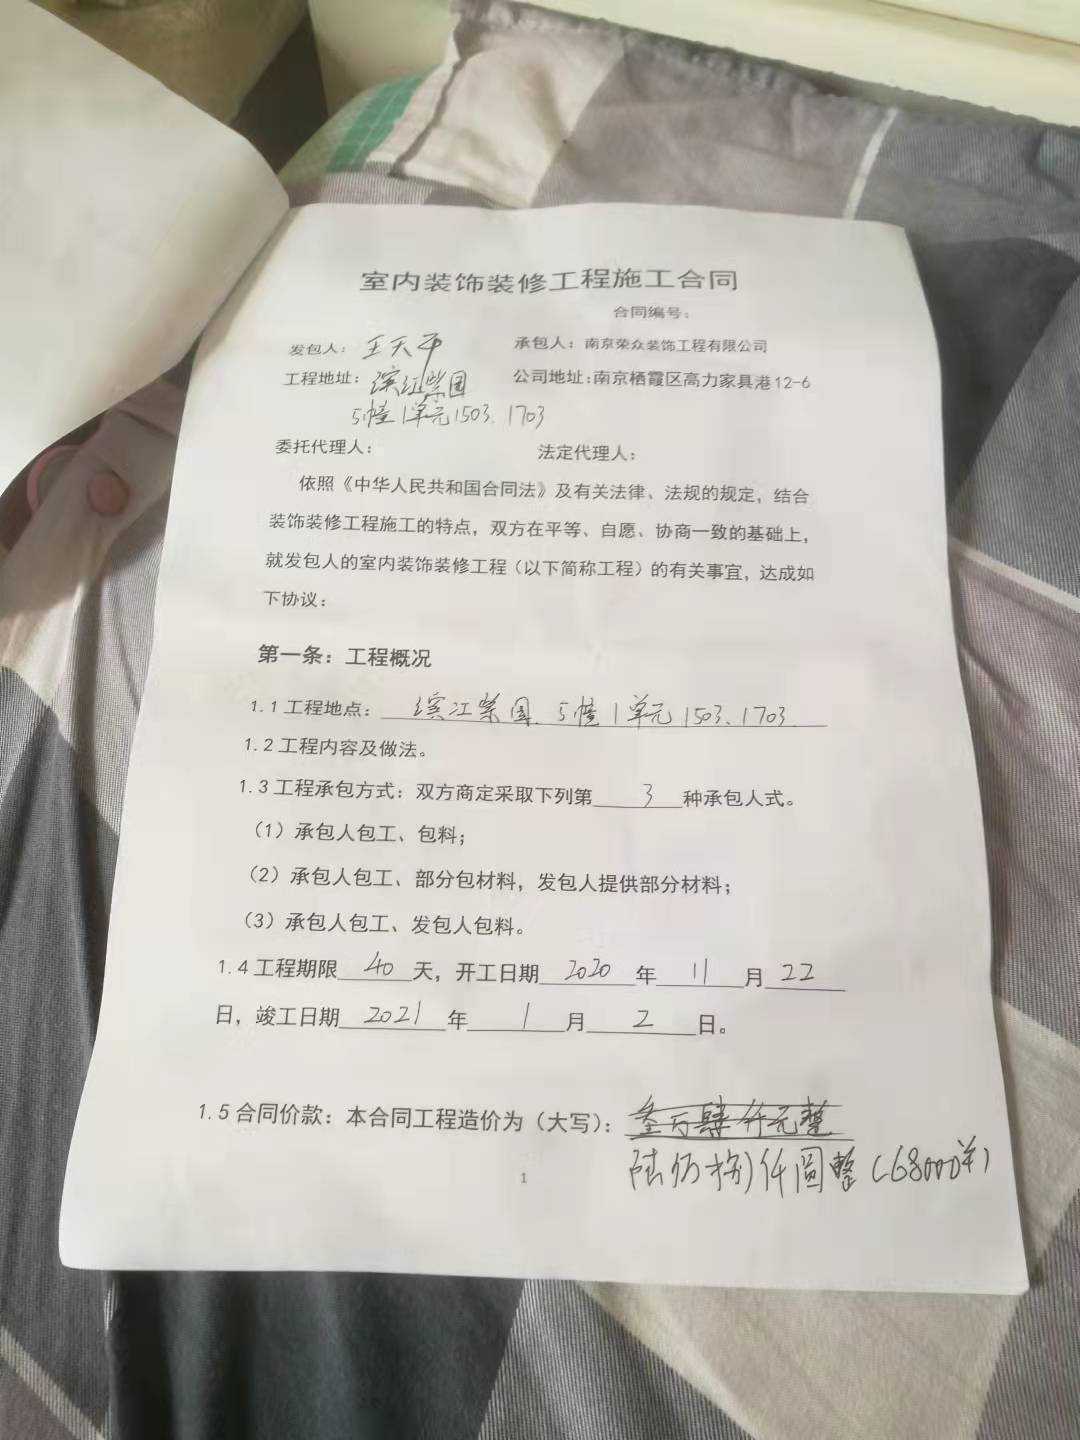 室内装饰装修工程施工合同
合同编号：
发包人：王天平 承包人：南京荣众装饰工程有限公司
工程地址：滨江紫园 公司地址：南京栖霞区高力家具港12-6
5幢1单元1503、1703
委托代理人： 法定代理人：
依照《中华人民共和国合同法》及有关法律、法规的规定，结合
装饰装修工程施工的特点，双方在平等、自愿、协商一致的基础上，
就发包人的室内装饰装修工程（以下简称工程）的有关事宜，达成如
下协议：
第一条：工程概况
1.1工程地点：滨江紫园、5幢1单元1503、1703
1.2工程内容及做法。
1.3工程承包方式：双方商定采取下列第 3 种承包人式。
（1）承包人包工、包料；
（2）承包人包工、部分包材料，发包人提供部分材料；
（3）承包人包工、发包人包料。
1.4工程期限 40 天，开工日期 2020 年 11 月 22
日，竣工日期 2021 年 1 月 2 日。
1.5合同价款：本合同工程造价为（大写）：叁万肆仟元整
陆万捌仟圆整（68000
1